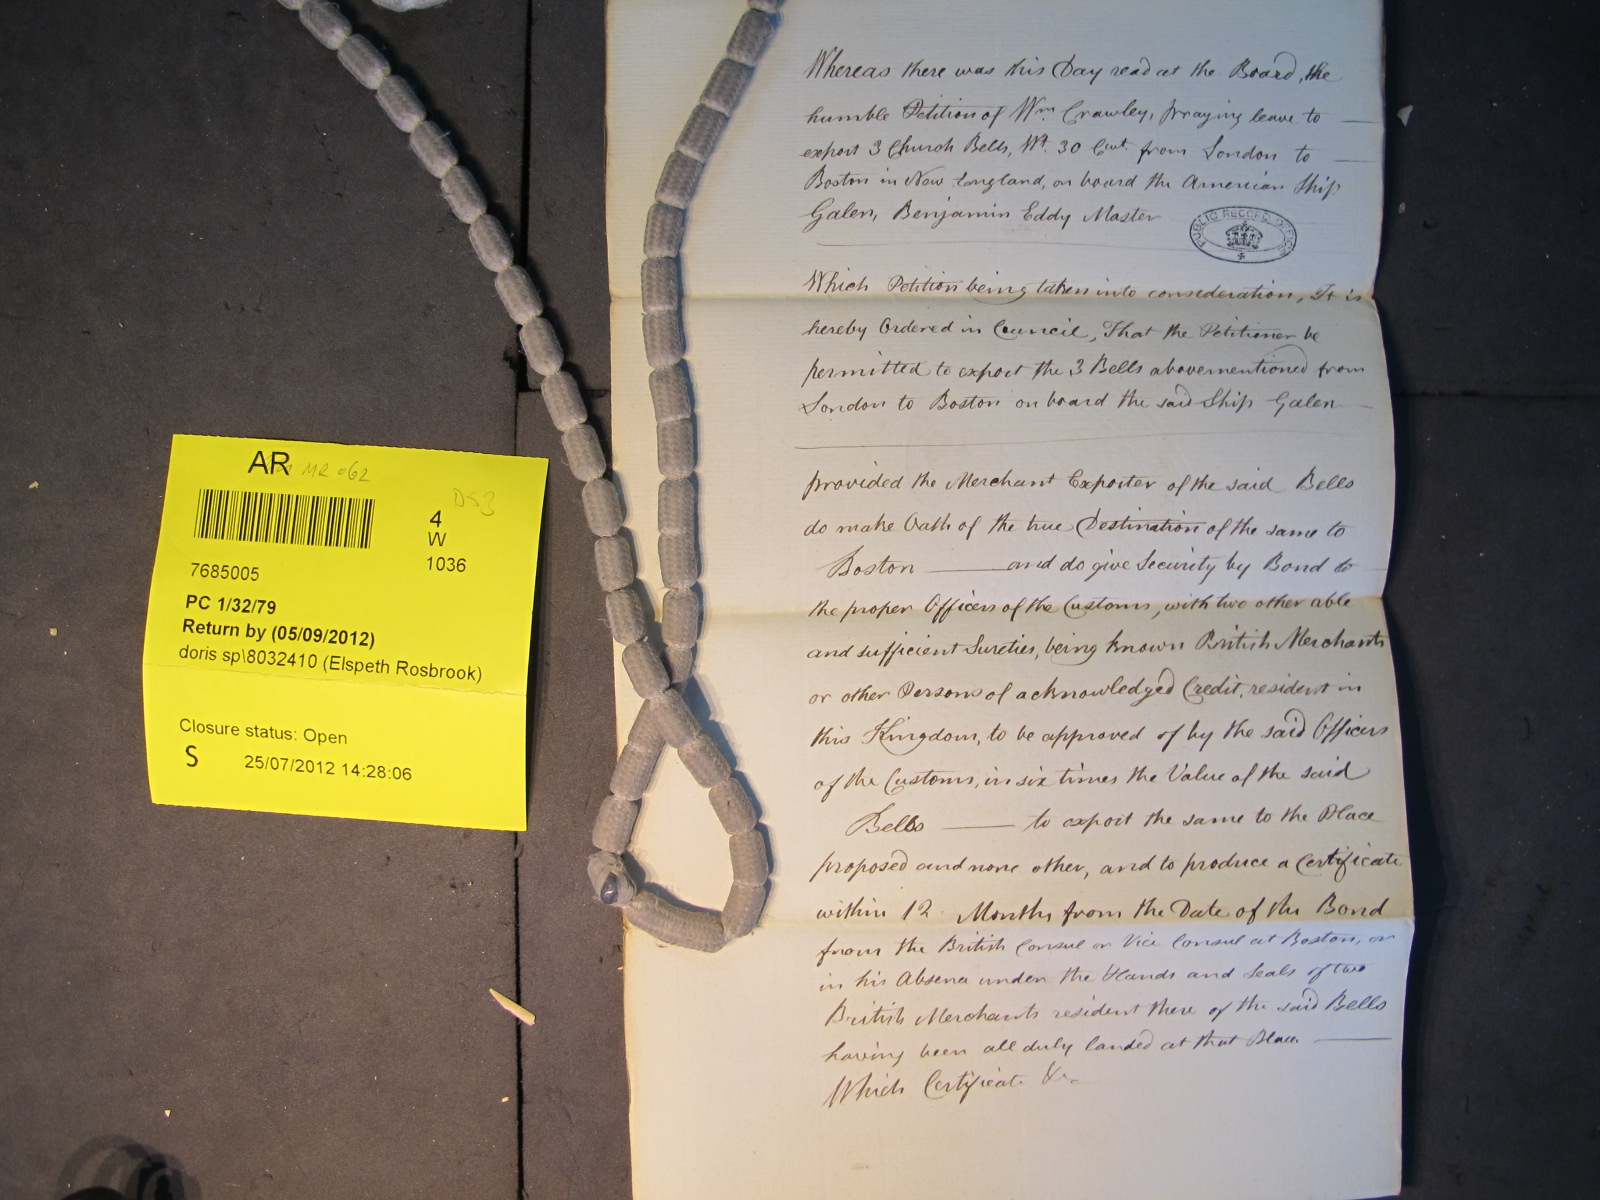 AR
MR 062
DS3
4
W
1036
7685005
PC 1/32/79
Return by (05/09/2012)
doris sp\8032410 (Elspeth Rosbrook)
Closure status: Open
S
25/07/2012 14:28:06
Whereas there was this Day read at the Board, the
humble Petition of Wm Crawley, praying leave to
export 3 Church Bells, Wt. 30 Cwt. from London to
Boston in New England, on board the American Ship
Galen, Benjamin Eddy Master
PUBLIC RECORD OFFICE
Which Petition being taken into consideration, It is
hereby Ordered in Council, That the Petitioner be
permitted to export the 3 Bells abovementioned from
London to Boston on board the said Ship Galen
provided the Merchant Exporter of the said Bells
do make Oath of the true Destination of the same to
Boston —— and do give Security by Bond to
the proper Officers of the Customs, with two other able
and sufficient Sureties, being known British Merchants
or other Persons of acknowledged Credit, resident in
this Kingdom, to be approved of by the said Officers
of the Customs, in six times the Value of the said
Bells —— to export the same to the Place
proposed and none other, and to produce a Certificate
within 12 Months from the Date of the Bond
from the British Consul or Vice Consul at Boston, or
in his Absence under the Hands and Seals of two
British Merchants resident there of the said Bells
having been all duly landed at that Place. ——
Which Certificate &c